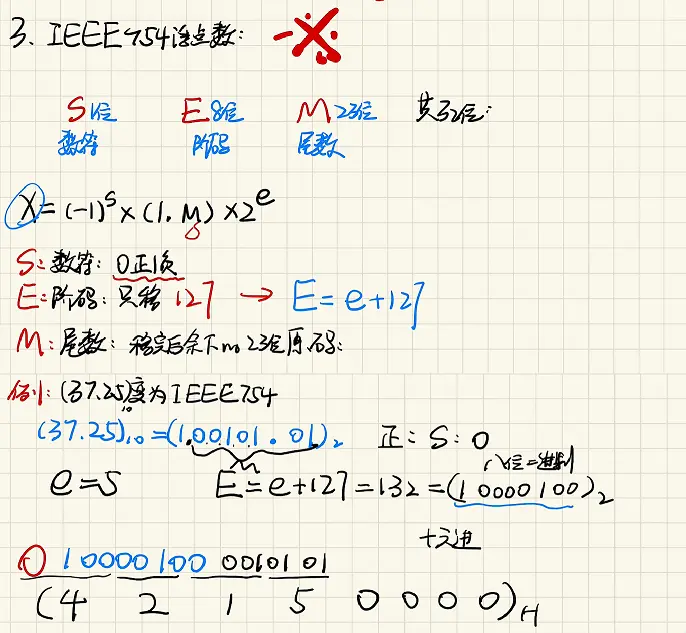 3、IEEE754浮点数:
S1位 E8位 M23位 共32位:
数符 阶码 尾数
X=(-1)^s×(1.M)×2^e
S:数符:0正1负
E:阶码:只移127→E=e+127
M:尾数:移完后余下的23位原码:
例1:(37.25)₁₀变为IEEE754
(37.25)₁₀=(1.00101.01)₂ 正:S:0
M 八位二进制
e=5 E=e+127=132=(10000100)₂
十六进
0 10000100 0010101
(4 2 1 5 0 0 0 0)H